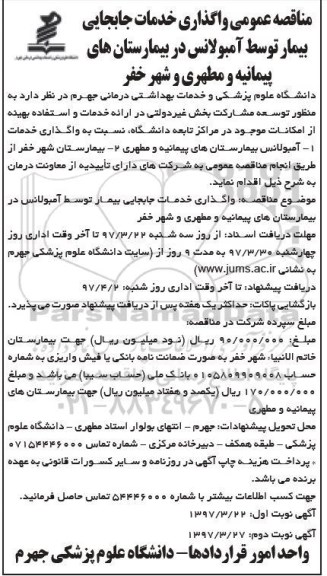 مناقصه عمومی واگذاری خدمات جابجایی
بیمار توسط آمبولانس در بیمارستان های
پیمانیه و مطهری و شهر خفر
دانشگاه علوم پزشکی و خدمات بهداشتی درمانی جهرم در نظر دارد به
منظور توسعه مشارکت بخش غیردولتی در ارائه خدمات و استفاده بهینه
از امکانات موجود در مراکز تابعه دانشگاه، نسبت به واگذاری خدمات
۱- آمبولانس بیمارستان های پیمانیه و مطهری ۲- بیمارستان شهر خفر از
طریق انجام مناقصه عمومی به شرکت های دارای تأییدیه از معاونت درمان
به شرح ذیل اقدام نماید.
موضوع مناقصه: واگذاری خدمات جابجایی بیمار توسط آمبولانس در
بیمارستان های پیمانیه و مطهری و شهر خفر
مهلت دریافت اسناد: از روز سه شنبه ۹۷/۳/۲۲ تا آخر وقت اداری روز
چهارشنبه ۹۷/۳/۳۰ به مدت ۹ روز از (سایت دانشگاه علوم پزشکی جهرم
به نشانی www.jums.ac.ir)
دریافت پیشنهاد: تا آخر وقت اداری روز شنبه: ۹۷/۴/۲
بازگشایی پاکات: حداکثر یک هفته پس از دریافت پیشنهاد صورت می پذیرد.
مبلغ سپرده شرکت در مناقصه:
مبلغ: ۹۰/۰۰۰/۰۰۰ ریال (نود میلیون ریال) جهت بیمارستان
خاتم الانبیا: شهر خفر به صورت ضمانت نامه بانکی یا فیش واریزی به شماره
حساب ۰۱۰۵۸۰۹۹۰۹۰۰۸ بانک ملی (حساب سیبا) می باشد و مبلغ
۱۷۰/۰۰۰/۰۰۰ ریال (یکصد و هفتاد میلیون ریال) جهت بیمارستان های
پیمانیه و مطهری
محل تحویل پیشنهادات: جهرم - انتهای بولوار استاد مطهری - دانشگاه علوم
پزشکی - طبقه همکف - دبیرخانه مرکزی - شماره تماس ۰۷۱۵۴۴۴۶۰۰۰
* پرداخت هزینه چاپ آگهی در روزنامه و سایر کسورات قانونی به عهده
برنده می باشد.
جهت کسب اطلاعات بیشتر با شماره ۵۴۴۴۶۰۰۰ تماس حاصل فرمائید.
آگهی نوبت اول: ۱۳۹۷/۳/۲۲
آگهی نوبت دوم: ۱۳۹۷/۳/۲۷
واحد امور قراردادها- دانشگاه علوم پزشکی جهرم